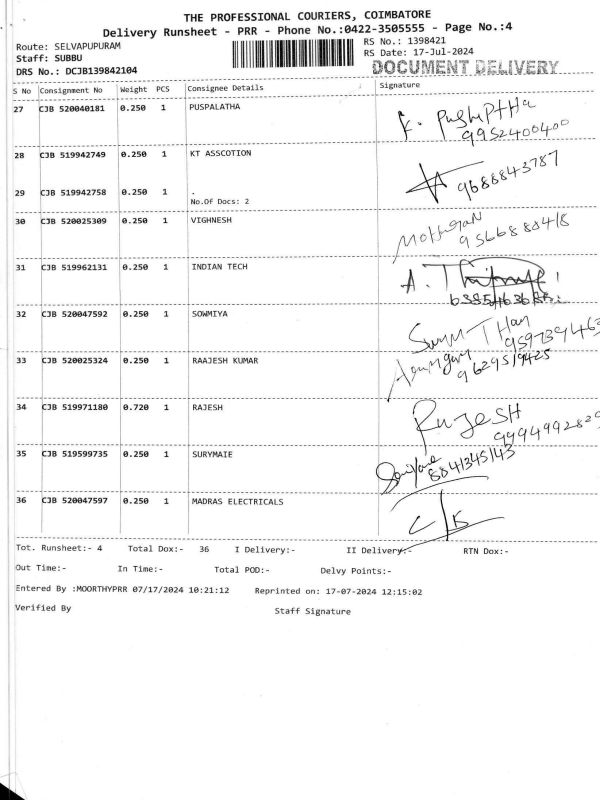 THE PROFESSIONAL COURIERS, COIMBATORE
Delivery Runsheet - PRR - Phone No.:0422-3505555 - Page No.:4
Route: SELVAPUPURAM
Staff: SUBBU
DRS No.: DCJB139842104
RS No.: 1398421
RS Date: 17-Jul-2024
DOCUMENT DELIVERY
S No Consignment No Weight PCS Consignee Details Signature
27 CJB 520040181 0.250 1 PUSPALATHA
9952400400
28 CJB 519942749 0.250 1 KT ASSCOTION
9688843787
29 CJB 519942758 0.250 1 .
No.Of Docs: 2
30 CJB 520025309 0.250 1 VIGHNESH
31 CJB 519962131 0.250 1 INDIAN TECH
32 CJB 520047592 0.250 1 SOWMIYA
33 CJB 520025324 0.250 1 RAAJESH KUMAR
9629519425
34 CJB 519971180 0.720 1 RAJESH
RajeSH
35 CJB 519599735 0.250 1 SURYMAIE
8841345143
36 CJB 520047597 0.250 1 MADRAS ELECTRICALS
Tot. Runsheet:- 4 Total Dox:- 36 I Delivery:- II Delivery:- RTN Dox:-
Out Time:- In Time:- Total POD:- Delvy Points:-
Entered By :MOORTHYPRR 07/17/2024 10:21:12 Reprinted on: 17-07-2024 12:15:02
Verified By Staff Signature